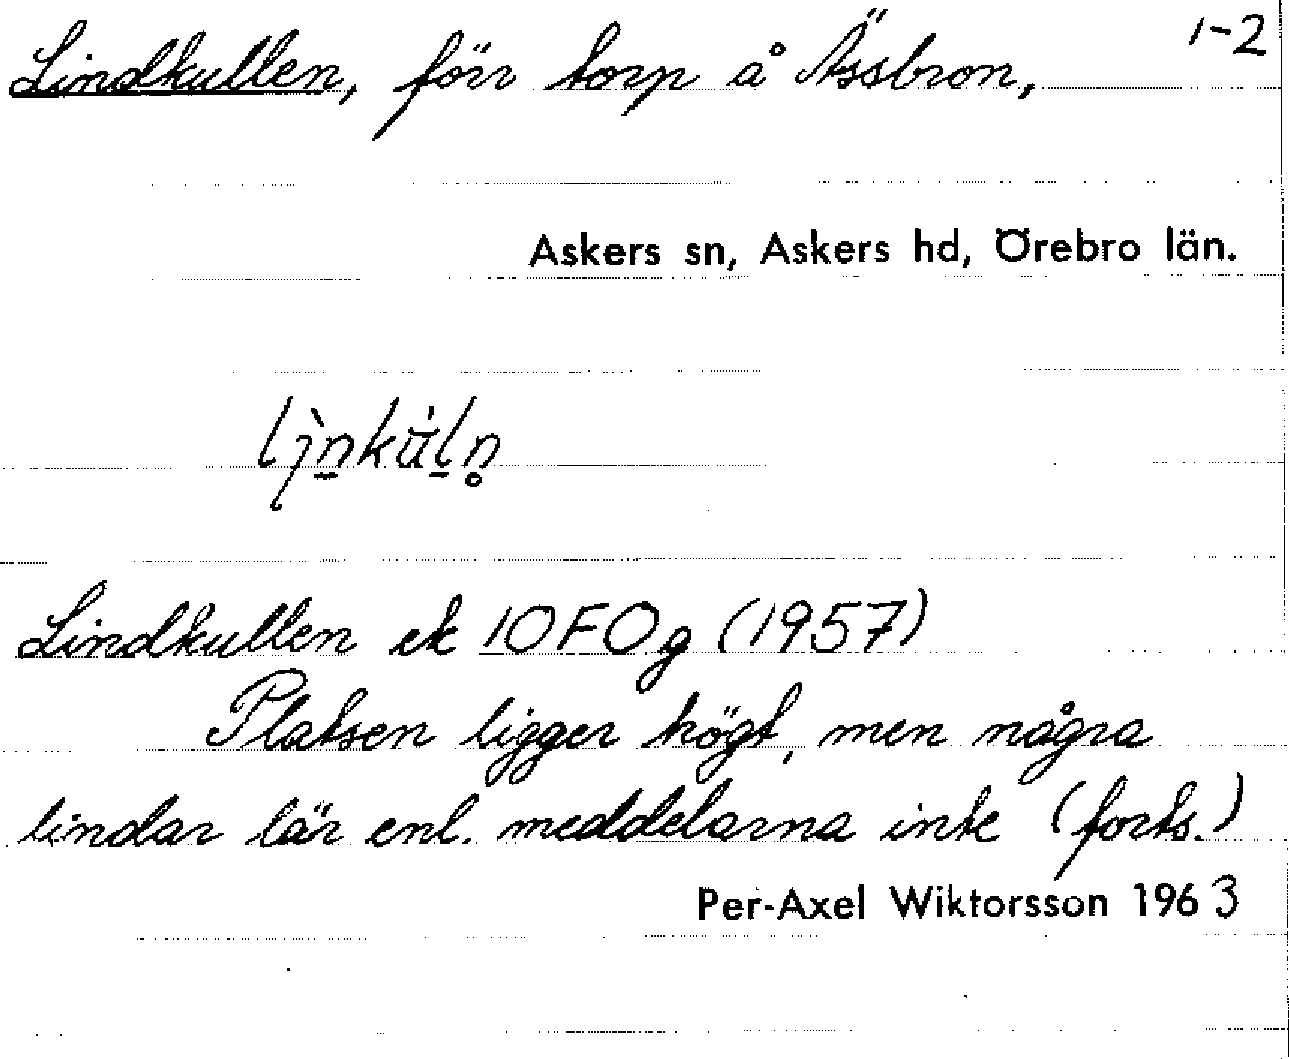 Lindkullen, förr torp å Ässbron, 1-2
Askers sn, Askers hd, Örebro län.
Lindkullen ek 10F0g (1957)
Platsen ligger högt, men några
lindar lär enl. meddelarna inte (forts.)
Per-Axel Wiktorsson 1963